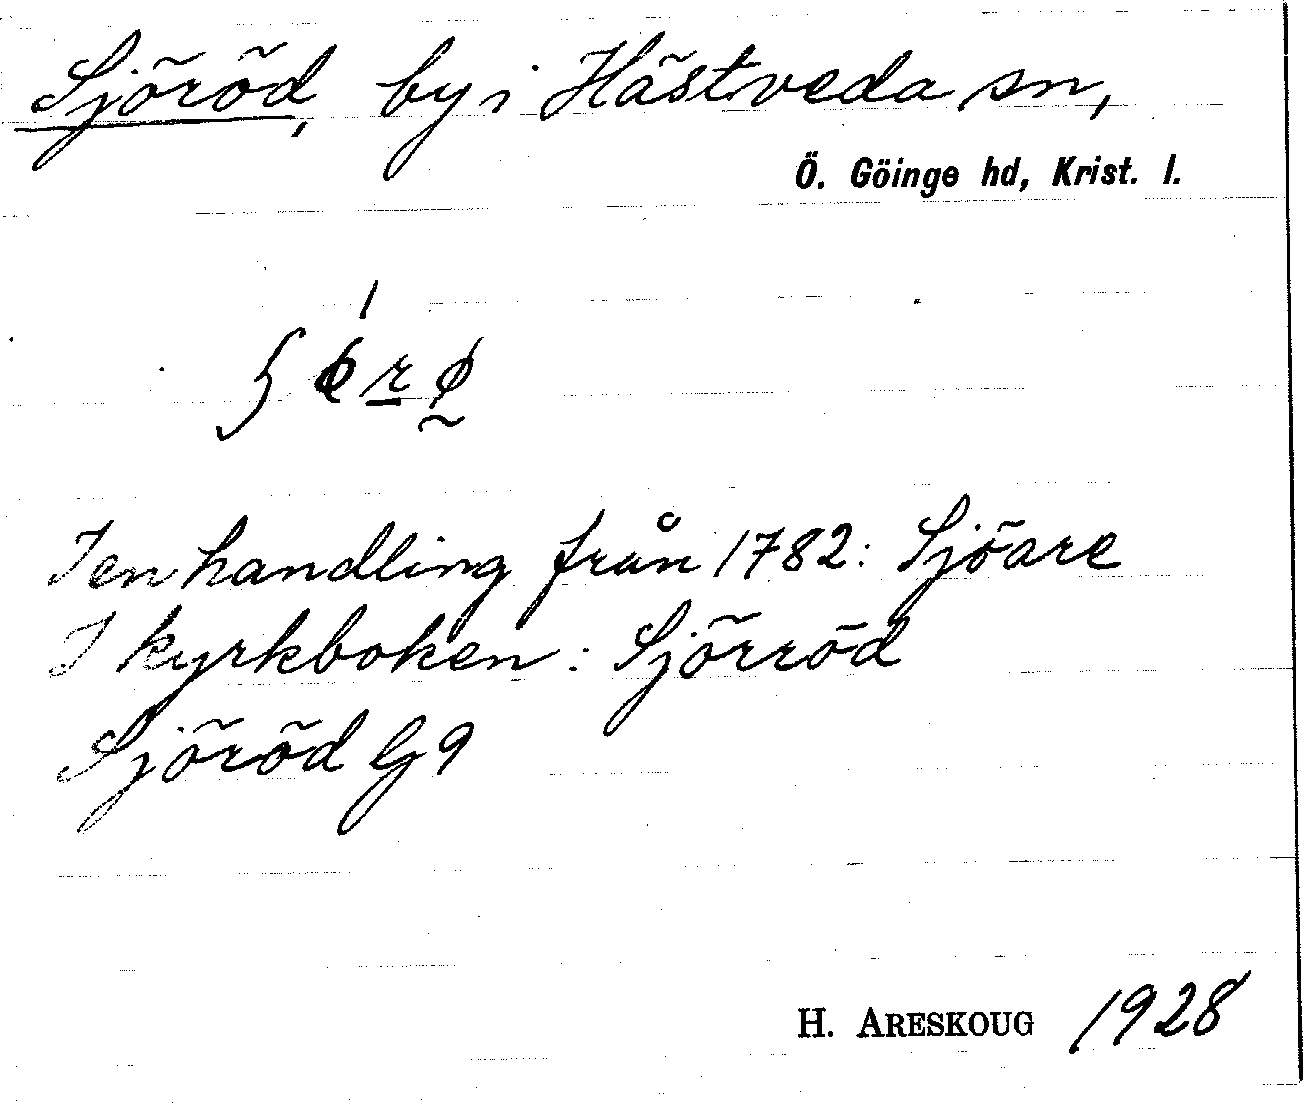 Sjöröd, by i Hästveda sn,
Ö. Göinge hd, Krist. l.
I en handling från 1782: Sjöare
I kyrkboken: Sjörröd
Sjöröd G9
H. ARESKOUG 1928